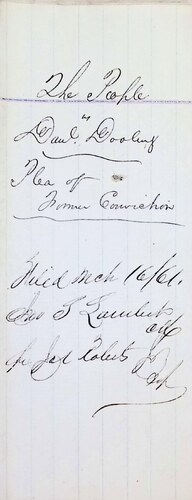 The People
"
Danl. Dooling
Plea of
Former Conviction
Filed Mch 16/61.
Jno T Lamberts
Clk
pr Jas Roberts